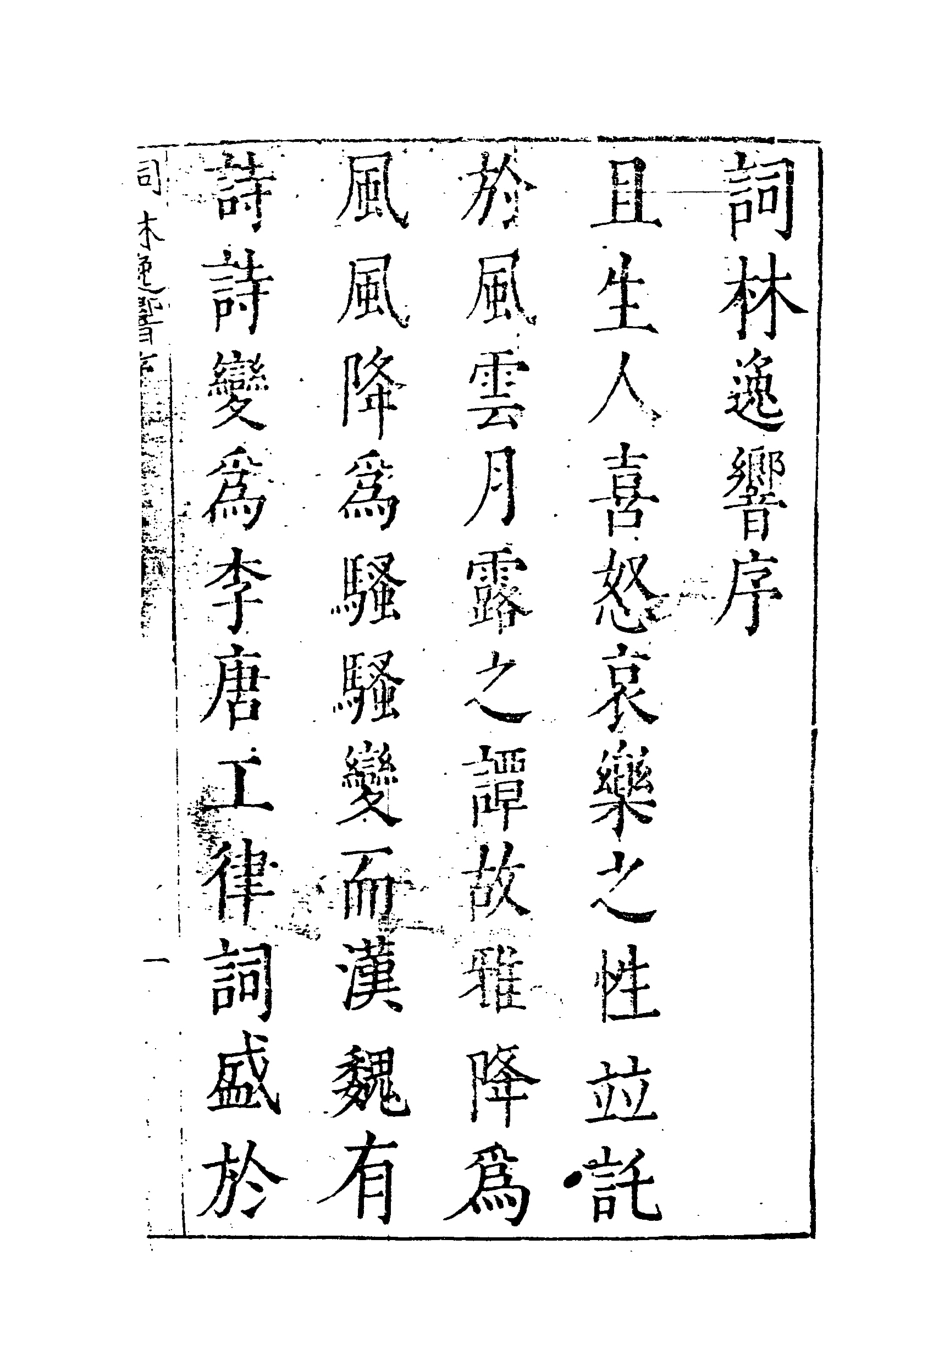 詞林逸響序
且生人喜怒哀樂之性並託
於風雲月露之譚故雅降為
風風降為騷騷變而漢魏有
詩詩變為李唐工律詞盛於
詞林逸響序
一